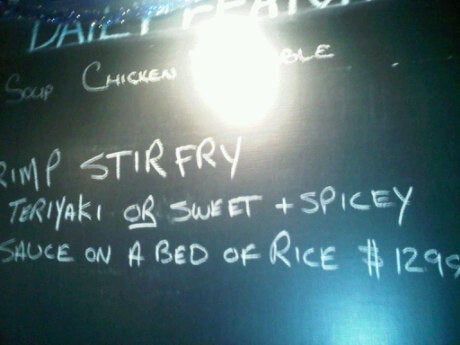 DAILY
SOUP CHICKEN
STIR FRY
TERIYAKI OR SWEET + SPICEY
SAUCE ON A BED OF RICE $ 1299